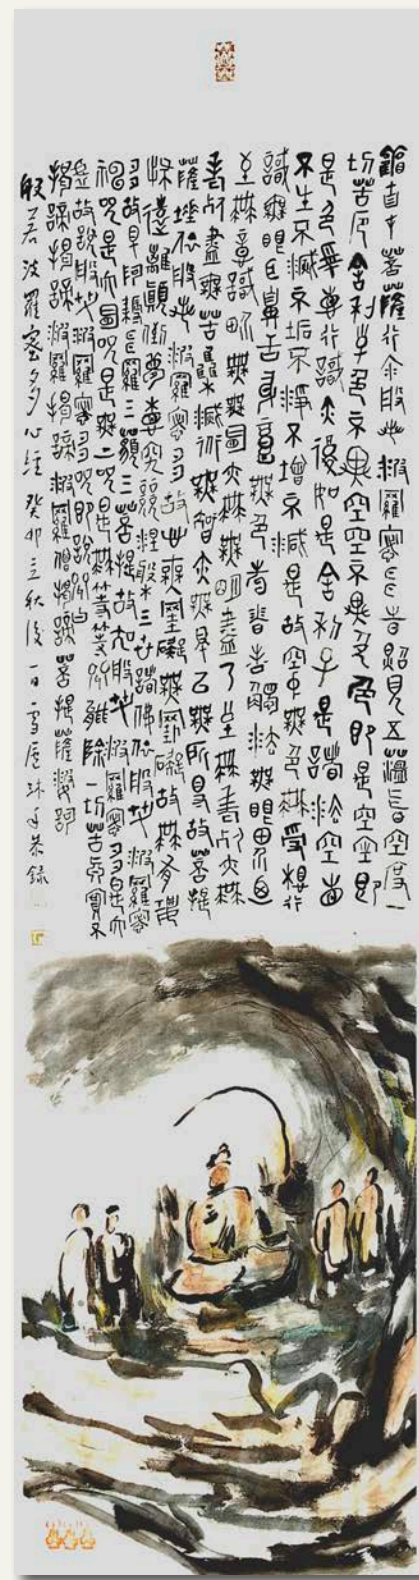 觀自在菩薩行深般若波羅蜜多時照見五蘊皆空度一
切苦厄舍利子色不異空空不異色色即是空空即
是色受想行識亦復如是舍利子是諸法空相
不生不滅不垢不淨不增不減是故空中無色無受想行
識無眼耳鼻舌身意無色聲香味觸法無眼界乃
至無意識界無無明亦無無明盡乃至無老死亦無
老死盡無苦集滅道無智亦無得以無所得故菩提
薩埵依般若波羅蜜多故心無罣礙無罣礙故無有恐
怖遠離顛倒夢想究竟涅槃三世諸佛依般若波羅蜜
多故得阿耨多羅三藐三菩提故知般若波羅蜜多是大
神咒是大明咒是無上咒是無等等咒能除一切苦真實不
虛故說般若波羅蜜多咒即說咒曰
揭諦揭諦波羅揭諦波羅僧揭諦菩提薩婆訶
般若波羅蜜多心經 癸卯立秋後一日雪沐手恭錄